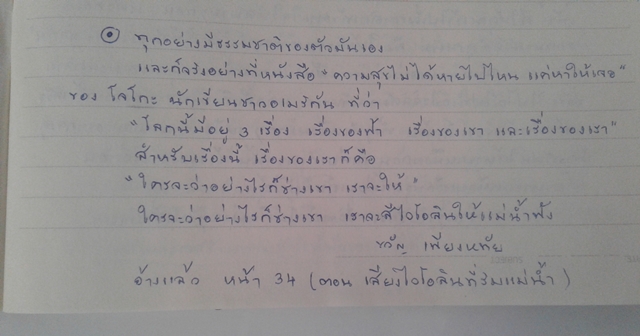 ทุกอย่างมีธรรมชาติของตัวมันเอง
และก็จริงอย่างที่หนังสือ "ความสุขไม่ได้หายไปไหน แค่หาให้เจอ"
ของ โจโกะ นักเขียนชาวอเมริกัน ที่ว่า
"โลกนี้มีอยู่ 3 เรื่อง เรื่องของฟ้า เรื่องของเขา และเรื่องของเรา"
สำหรับเรื่องนี้ เรื่องของเราก็คือ
"ใครจะว่าอย่างไรก็ช่างเขา เราจะให้"
ใครจะว่าอย่างไรก็ช่างเขา เราจะสีไวโอลินให้แม่น้ำฟัง
ขวัญ เพียงหทัย
อ้างแล้ว หน้า 34 (ตอน เสียงไวโอลินที่ริมแม่น้ำ)